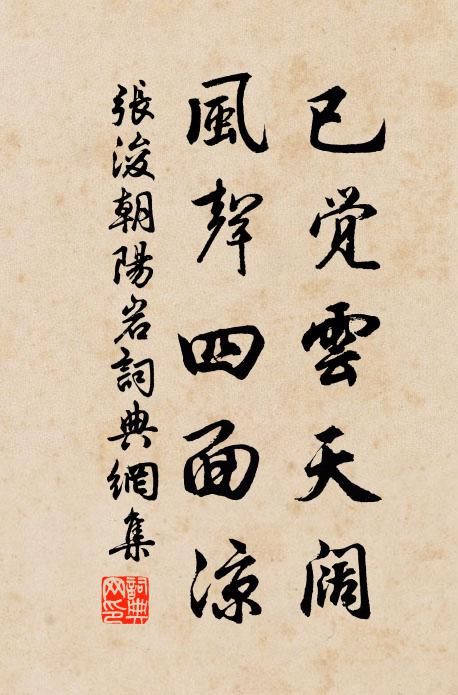 已觉雲天阔
風聲四面凉
張浚朝陽岩詞典網集
詞典
网印